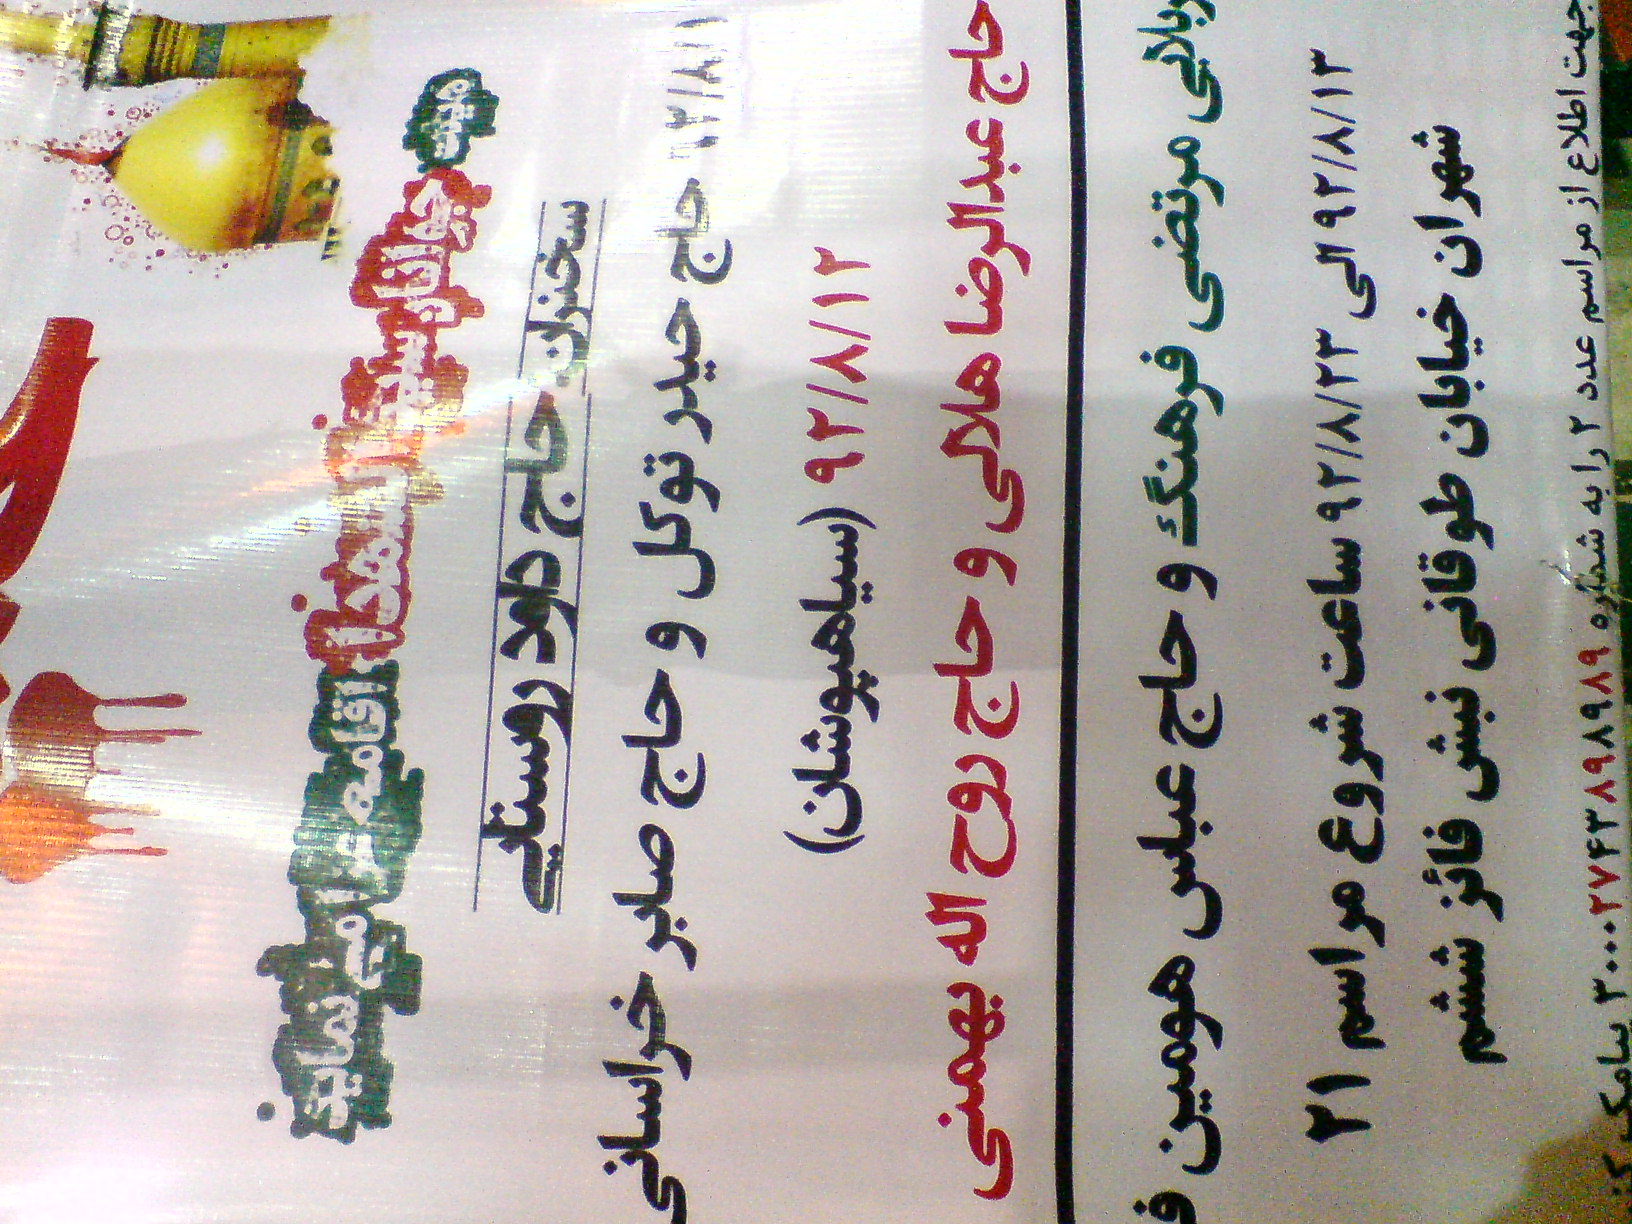 هیئت جانثاران سیدالشهدا اقامه عزا می نماید
سخنران حاج داود روستایی
۹۲/۸/۱۱ حاج حیدر توکل و حاج صابر خراسانی
۹۲/۸/۱۲ (سیاهپوشان)
حاج عبدالرضا هلالی و حاج روح اله بهمنی
کربلایی مرتضی فرهنگ و حاج عباس هومین ف
۹۲/۸/۱۳ الی ۹۲/۸/۲۳ ساعت شروع مراسم ۲۱
شهران خیابان طوقانی نبش فائز ششم
جهت اطلاع از مراسم عدد ۲ را به شماره ۳۰۰۰۲۷۴۳۸۹۸۹۸۹ پیامک